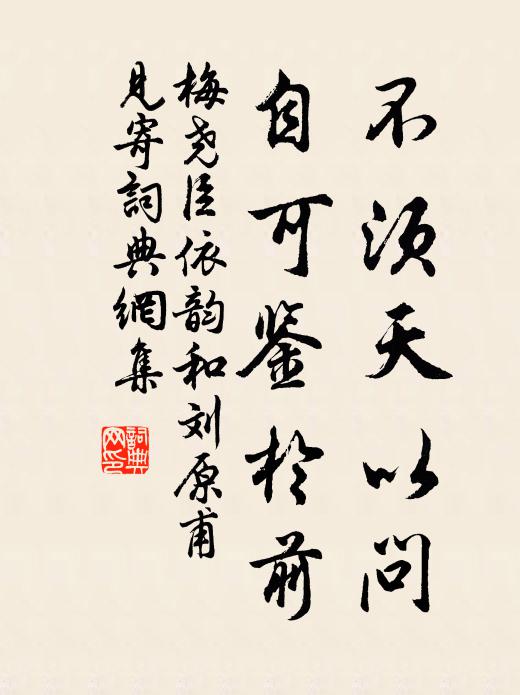 不须天以问
自可鉴於前
梅尧臣依韵和刘原甫
见寄詞典網集
詞典
网印